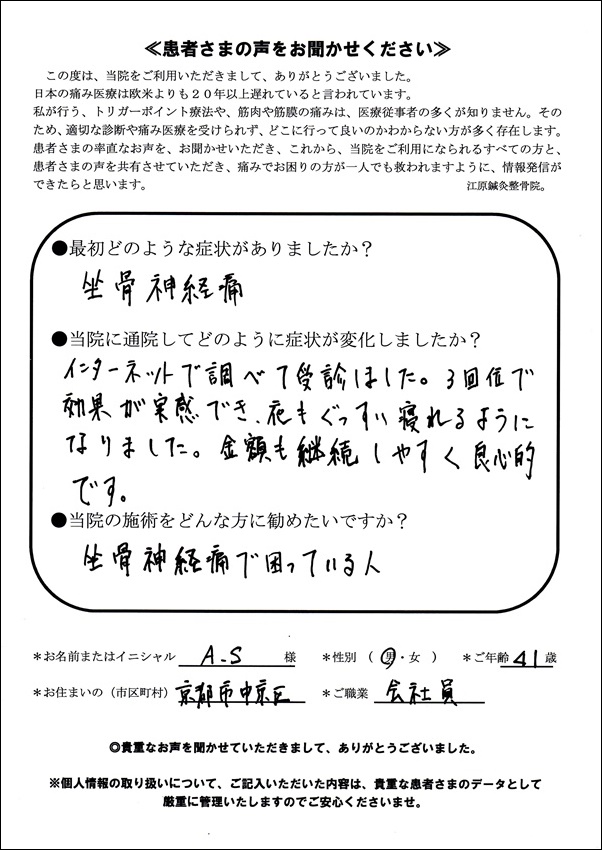 ≪患者さまの声をお聞かせください≫
この度は、当院をご利用いただきまして、ありがとうございました。
日本の痛み医療は欧米よりも２０年以上遅れていると言われています。
私が行う、トリガーポイント療法や、筋肉や筋膜の痛みは、医療従事者の多くが知りません。その
ため、適切な診断や痛み医療を受けられず、どこに行って良いのかわからない方が多く存在します。
患者さまの率直なお声を、お聞かせいただき、これから、当院をご利用になられるすべての方と、
患者さまの声を共有させていただき、痛みでお困りの方が一人でも救われますように、情報発信が
できたらと思います。 江原鍼灸整骨院。
●最初どのような症状がありましたか？
坐骨神経痛
●当院に通院してどのように症状が変化しましたか？
インターネットで調べて受診しました。3回位で
効果が実感でき、夜もぐっすり寝れるように
なりました。金額も継続しやすく良心的
です。
●当院の施術をどんな方に勧めたいですか？
坐骨神経痛で困っている人
＊お名前またはイニシャル A.S 様 ＊性別（男・女） ＊ご年齢 41 歳
＊お住まいの（市区町村） 京都市中京区 ＊ご職業 会社員
◎貴重なお声を聞かせていただきまして、ありがとうございました。
※個人情報の取り扱いについて、ご記入いただいた内容は、貴重な患者さまのデータとして
厳重に管理いたしますのでご安心くださいませ。